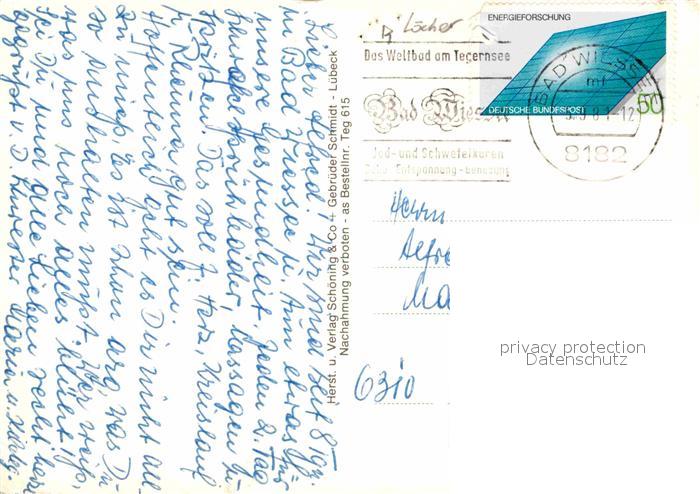 Lieber Alfred! Wir sind seit 8 Tg.
in Bad Wiessee u. tun etwas für
unsere Gesundheit. Jeden 2. Tag
Jod-
Spritzen. Das soll f. Herz, Kreislauf
u. Rheuma gut sein.
Hoffentlich geht es Dir nicht all
zu mies, es ist schon arg, was Du
so mithalten mußt. Wer weiß,
was uns noch alles blüht!
Sei Du und alle Lieben recht herz.
gegrüßt v. D.
Herst. u. Verlag Schöning & Co + Gebrüder Schmidt - Lübeck
Nachahmung verboten - as Bestellnr. Teg 615
Löcher
Das Weltbad am Tegernsee
Bad Wiessee
Jod- und Schwefelkuren
Entspannung - Genesung
ENERGIEFORSCHUNG
DEUTSCHE BUNDESPOST
50
BAD WIESSEE
8182
Herrn
Alfre
Ma
6310
privacy protection
Datenschutz